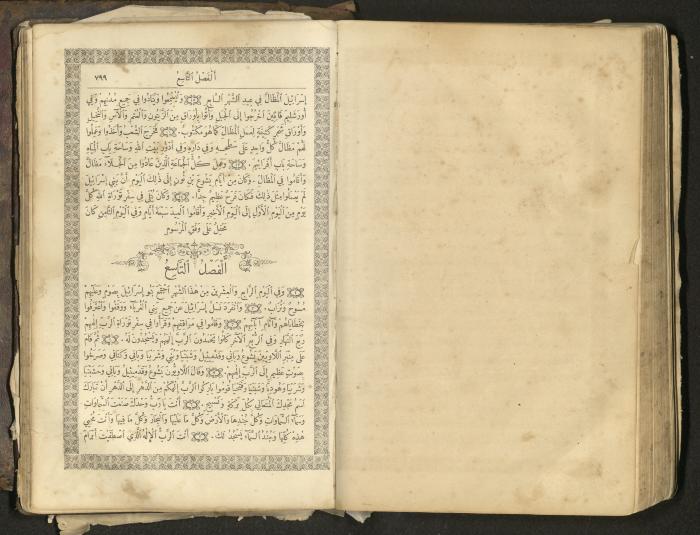 ألفصل التاسع ٧٩٩
إسرائيل المظال في عيد الشهر السابع وليسمعوا وينادوا في جميع مدنهم وفي
أورشليم قائلين اخرجوا إلى الجبل وأتوا بأوراق من الزيتون والعتم والآس والنخيل
وأوراق شجر كثيفة لعمل المظال كما هو مكتوب. فخرج الشعب وأخذوا وعملوا
لهم مظال كل واحد على سطحه وفي داره وفي أدور بيت الله وساحة باب المياه
وساحة باب أفرائيم. وعمل كل الجماعة الذين عادوا من الجلاء مظال
وأقاموا في المظال. وكان من أيام يشوع بن نون إلى ذلك اليوم أن بني إسرائيل
لم يعملوا مثل ذلك فكان فرح عظيم جدا. وكان يتلى في سفر توراة الله كل
يوم من اليوم الأول إلى اليوم الأخير وأقاموا العيد سبعة أيام وفي اليوم الثامن كان
محفل على وفق المرسوم
ألفصل التاسع
وفي اليوم الرابع والعشرين من هذا الشهر اجتمع بنو إسرائيل بصوم وعليهم
مسوح وتراب. وانفرد نسل إسرائيل عن جميع بني الغرباء ووقفوا واعترفوا
بخطاياهم وآثام آبائهم وقاموا في مواقفهم وقرأوا في سفر توراة الرب إلههم
ربع النهار وفي الربع الآخر كانوا يحمدون الرب إلههم ويسجدون له. ثم قام
على منبر اللاويين يشوع وباني وقدميئيل وشبنيا وبني وشربيا وباني وكناني وصرخوا
بصوت عظيم إلى الرب إلههم. وقال اللاويون يشوع وقدميئيل وباني وحشبنيا
وشربيا وهوديا وشبنيا وفتحيا قوموا باركوا الرب إلهكم من الدهر إلى الدهر تبارك
اسم مجدك المتعالي بكل بركة وتسبيح. أنت يا رب وحدك صنعت السماوات
وسماء السماوات وكل جندها والأرض وكل ما عليها والبحار وكل ما فيها وأنت تحيي
هذه كلها وجند السماء يسجد لك. أنت الرب الإله الذي اصطفيت أبرام